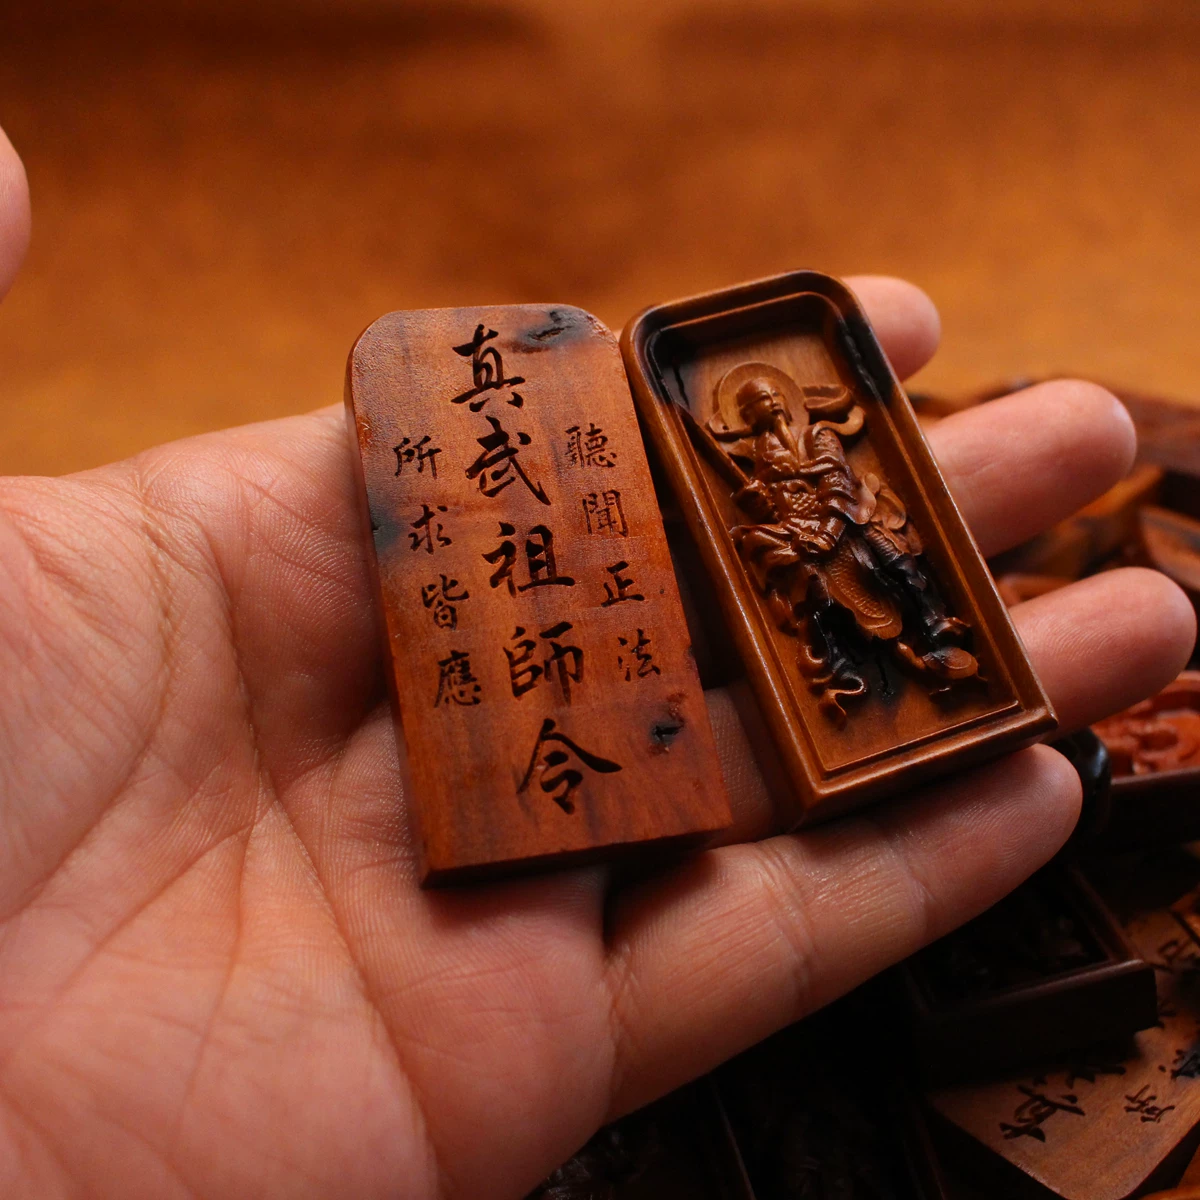 聽聞正法
真武祖師令
所求皆應
真
所